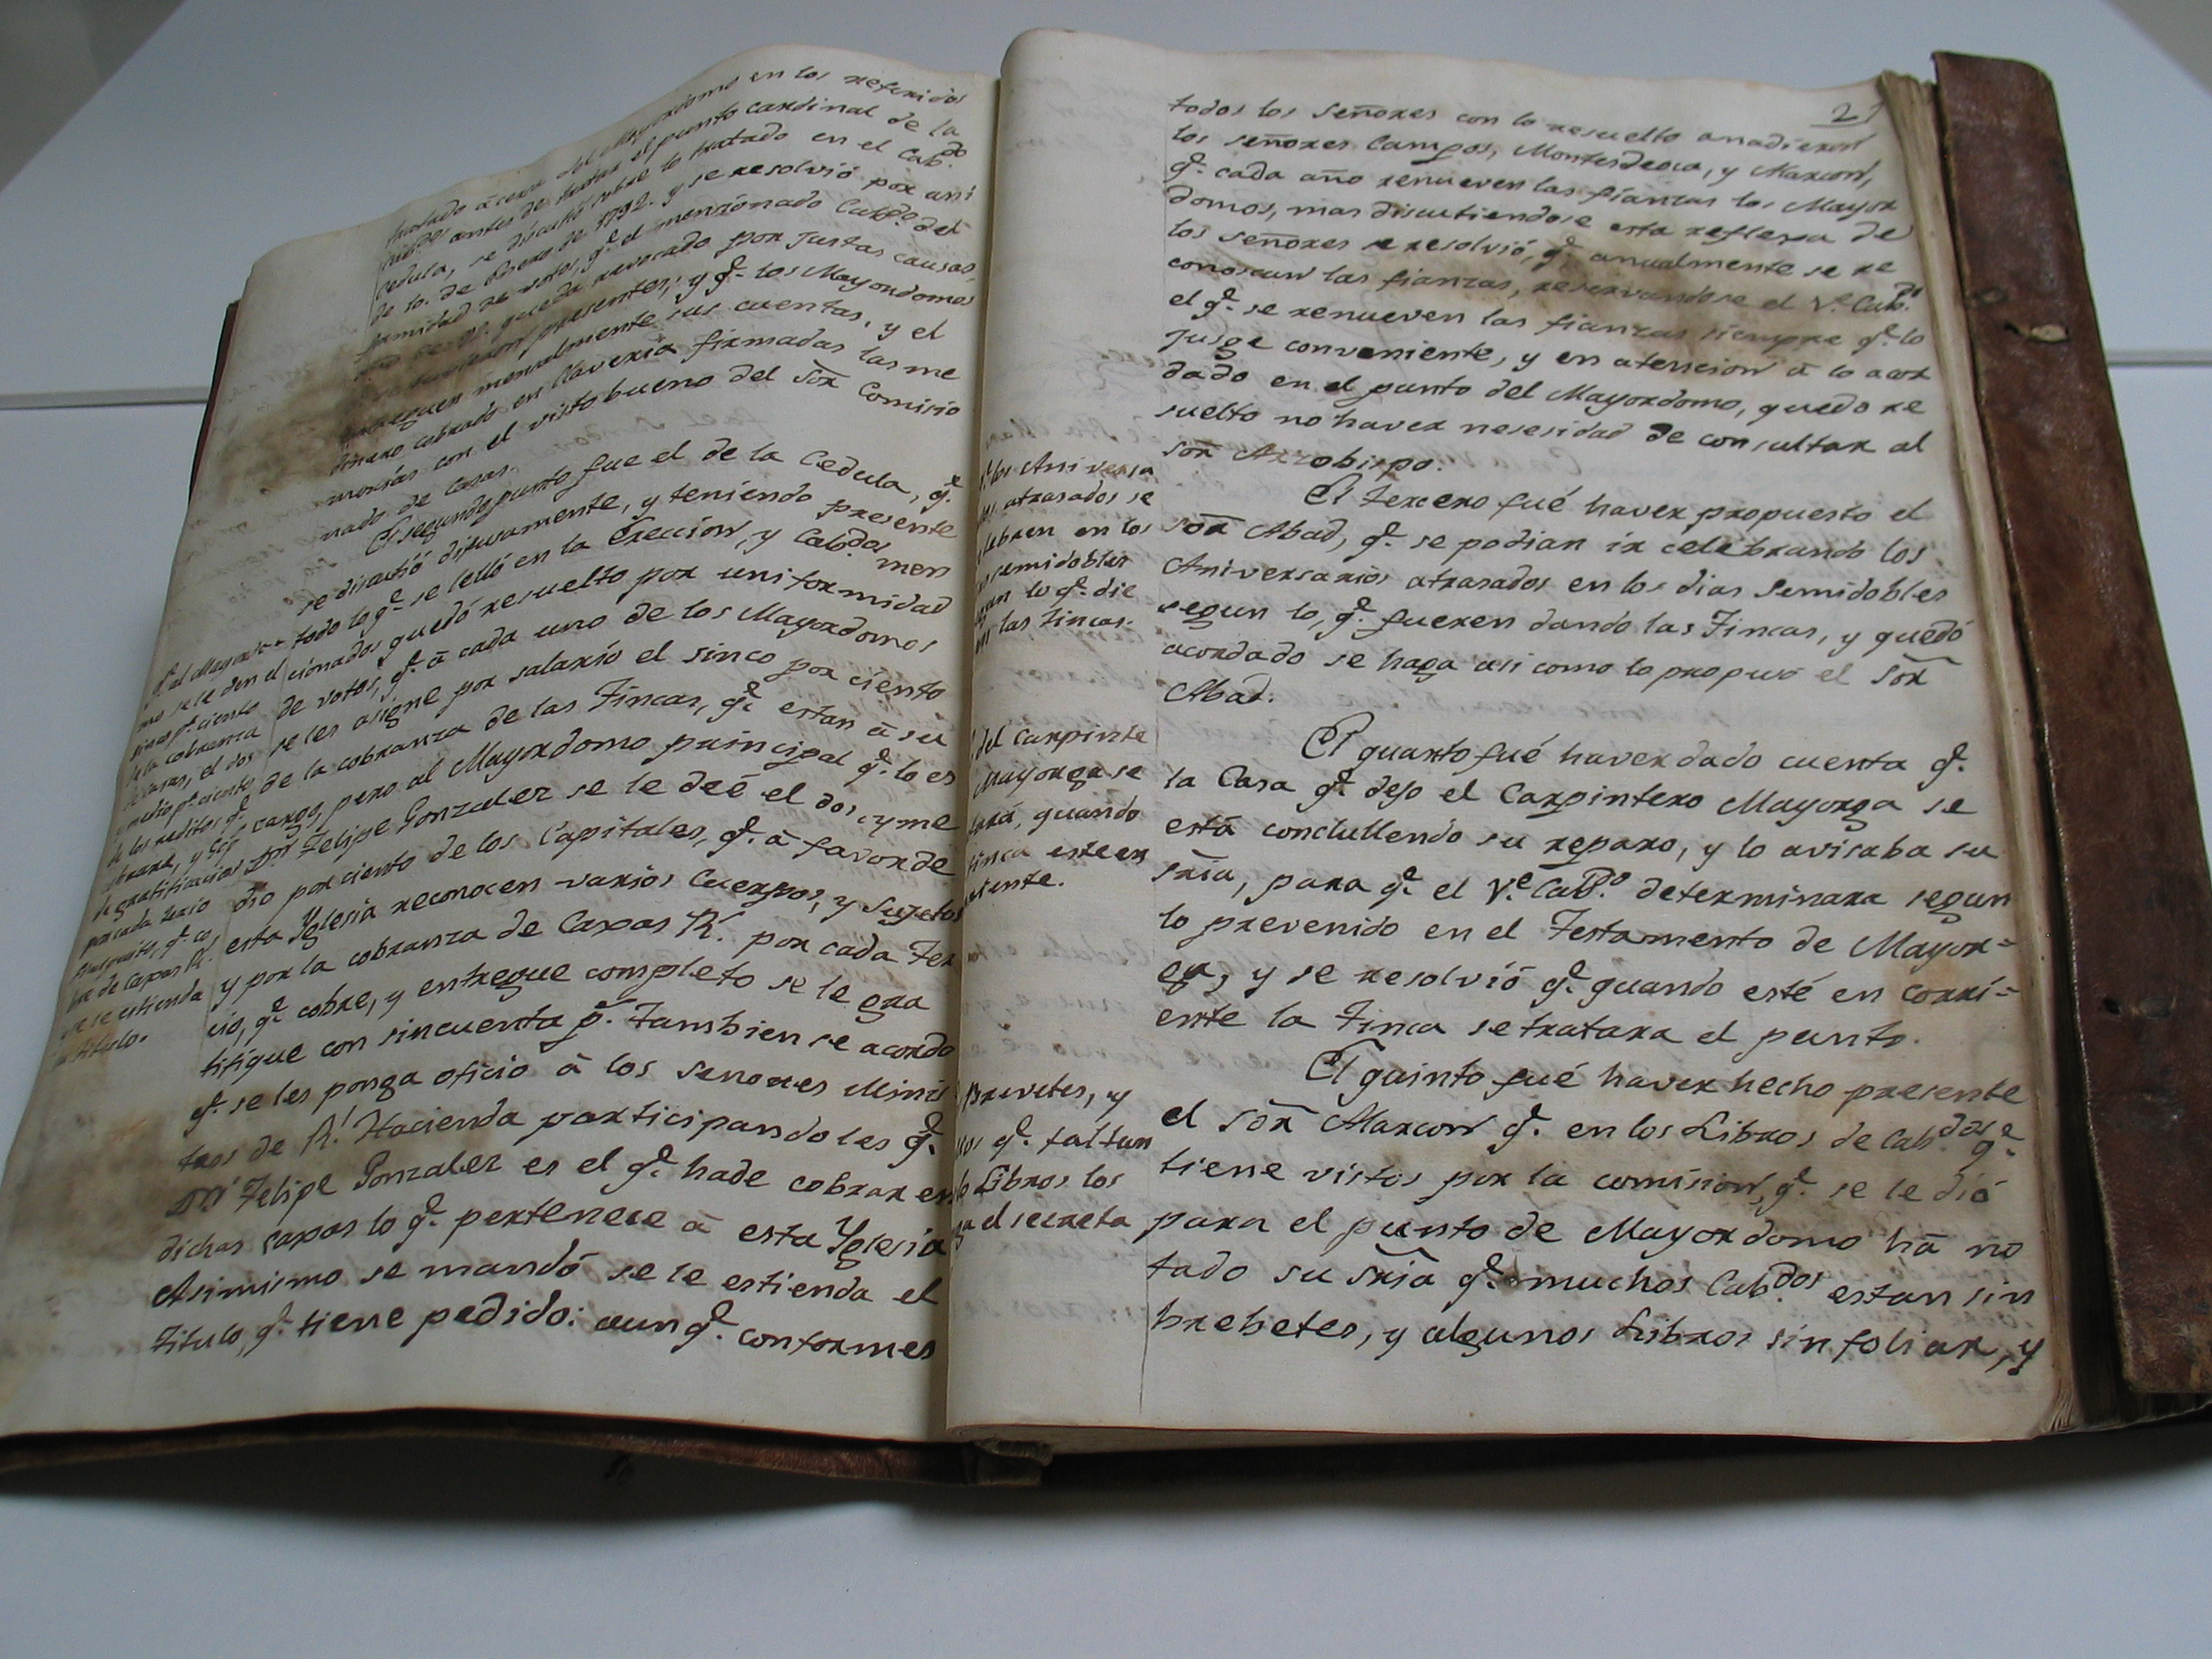 tratado acerca del Mayordomo en los referidos
antes de tratar el punto cardinal de la
Cedula, se discutió sobre lo tratado en el Cab.do
de 10. de Enero de 1792. y se resolvió por uni
formidad de votos, q.e el mencionado Cab.do del
queda revocado por justas causas
presentes, y q.e los Mayordomos
entreguen mensualmente sus cuentas, y el
dinero cobrado en llaveria firmadas las me
morias con el visto bueno del Sor Comisio
nado de Casas.
El segundo punto fue el de la Cedula, q.e
se discutió difusamente, y teniendo presente
todo lo q.e se lelló en la Ereccion, y Cab.dos men
cionados quedó resuelto por uniformidad
de votos, q.e â cada uno de los Mayordomos
se les asigne por salario el sinco por ciento
de la cobranza de las Fincas, q.e estan â su
cargo, pero al Mayordomo principal q.e lo es
Dn Felipe Gonzalez se le deé el dos, y me
dio por ciento de los Capitales, q.e â favor de
esta Yglesia reconocen varios Cuerpos, y Sugetos
y por la cobranza de Caxas R.s por cada Ter
cio, q.e cobre, y entregue completo se le gra
tifique con sincuenta p.s Tambien se acordó
q.e se les ponga oficio â los senores Minis
tros de R.l Hacienda participandoles q.e
Dn Felipe Gonzalez es el q.e hade cobrar en
dichas caxas lo q.e pertenece â esta Yglesia
Asimismo se mandó se le estienda el
titulo, q.e tiene pedido: aunq.e conformes
q.e al Mayordo
mo se le den el
sinco p.r ciento
de la cobranza
de casas, el dos
y medio p.r ciento
de los reditos q.e
cobrare, y
de gratificacion
por cada tercio
q.e co
bre de Caxas R.s
y se le estienda
su titulo.
21
todos los Señores con lo resuelto anadieron
los señores Campos, Montesdeoca, y Marcon,
q.e cada año renueven las fianzas los Mayor
domos, mas discutiendose esta reflexa de
los señores se resolvió, q.e anualmente se re
conoscan las fianzas, reservandose el V.e Cab.do
el q.e se renueven las fianzas siempre q.e lo
jusge conveniente, y en atencion â lo acor
dado en el punto del Mayordomo, quedo re
suelto no haver nesesidad de consultar al
Sor Arzobispo.
El tercero fué haver propuesto el
Sor Abad, q.e se podian ir celebrando los
Aniversarios atrasados en los dias Semidobles
segun lo, q.e fueren dando las Fincas, y quedó
acordado se haga asi como lo propuso el Sor
Abad.
El quarto fué haver dado cuenta q.e
la Casa q.e dejo el Carpintero Mayorga se
está conclullendo su reparo, y lo avisaba su
sria, para q.e el V.e Cab.do determinara segun
lo prevenido en el Testamento de Mayor=
ga, y se resolvió q.e quando esté en corri=
ente la Finca se tratara el punto.
El quinto fué haver hecho presente
el Sor Marcon q.e en los Libros de Cab.dos q.e
tiene vistos por la comision, q.e se le dió
para el punto de Mayordomo há no
tado su Sria q.e muchos Cab.dos estan sin
brebetes, y algunos Libros sin foliar, y
los Aniversa
atrasados se
lebren en los
semidobles
gun lo q.e die
las Fincas.
del Carpinte
Mayorga se
tará, quando
finca este en
riente.
Brevetes, y
q.e faltan
Libros los
el secreta